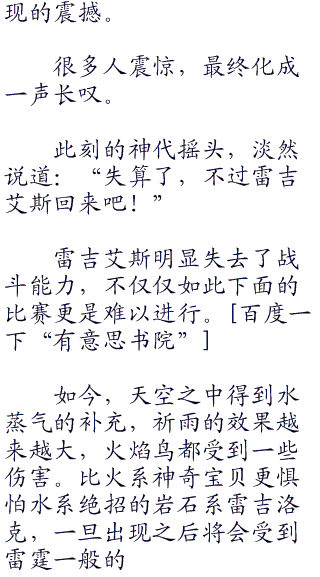 现的震撼。
很多人震惊，最终化成
一声长叹。
此刻的神代摇头，淡然
说道：“失算了，不过雷吉
艾斯回来吧！”
雷吉艾斯明显失去了战
斗能力，不仅仅如此下面的
比赛更是难以进行。[百度一
下“有意思书院”]
如今，天空之中得到水
蒸气的补充，祈雨的效果越
来越大，火焰鸟都受到一些
伤害。比火系神奇宝贝更惧
怕水系绝招的岩石系雷吉洛
克，一旦出现之后将会受到
雷霆一般的